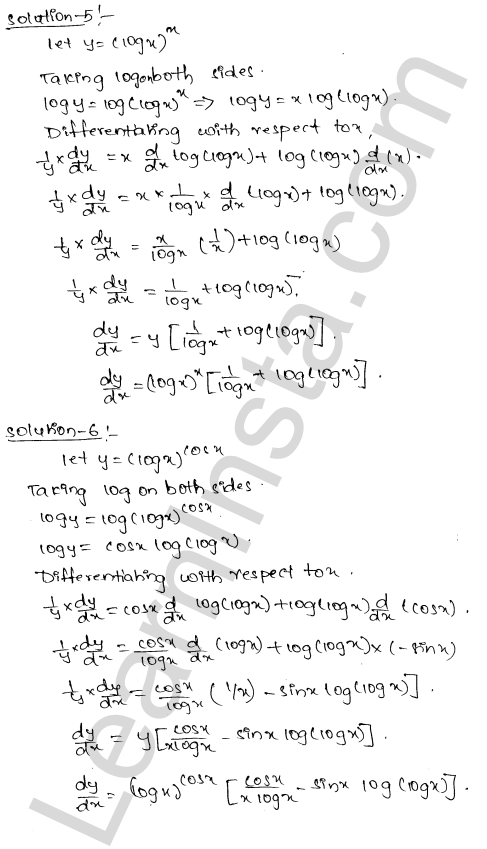 Solution-5!-
let y = (logx)^x
Taking log on both sides.
logy = log(logx)^x => logy = x log(logx).
Differentiating with respect to x,
1/y × dy/dx = x d/dx log(logx) + log(logx) d/dx (x).
1/y × dy/dx = x × 1/logx × d/dx (logx) + log(logx).
1/y × dy/dx = x/logx (1/x) + log(logx)
1/y × dy/dx = 1/logx + log(logx).
dy/dx = y [1/logx + log(logx)].
dy/dx = (logx)^x [1/logx + log(logx)].
Solution-6!-
let y = (logx)^cosx
Taking log on both sides.
logy = log(logx)^cosx
logy = cosx log(logx).
Differentiating with respect to x.
1/y × dy/dx = cosx d/dx log(logx) + log(logx) d/dx (cosx).
1/y × dy/dx = cosx/logx d/dx (logx) + log(logx) × (-sinx)
1/y × dy/dx = cosx/logx (1/x) - sinx log(logx)].
dy/dx = y [cosx/xlogx - sinx log(logx)].
dy/dx = (logx)^cosx [cosx/x logx - sinx log(logx)].
LearnInsta.com